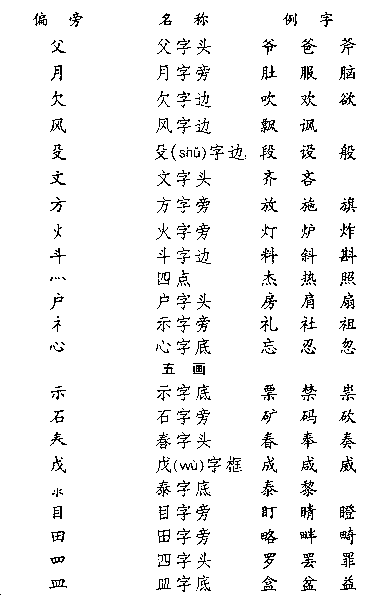 偏旁 名称 例字
父 父字头 爷 爸 斧
月 月字旁 肚 服 脑
欠 欠字边 吹 欢 欲
风 风字边 飘 讽
殳 殳(shū)字边 段 设 般
文 文字头 齐 吝
方 方字旁 放 施 旗
火 火字旁 灯 炉 炸
斗 斗字边 料 斜 斟
灬 四点 杰 热 照
户 户字头 房 肩 扇
礻 示字旁 礼 社 祖
心 心字底 忘 忍 忽
五画
示 示字底 票 禁 祟
石 石字旁 矿 码 砍
𡗗 春字头 春 奉 奏
戊 戊(wù)字框 成 咸 威
氺 泰字底 泰 黎
目 目字旁 盯 睛 瞪
田 田字旁 略 畔 畸
罒 四字头 罗 罢 罪
皿 皿字底 盒 盆 益